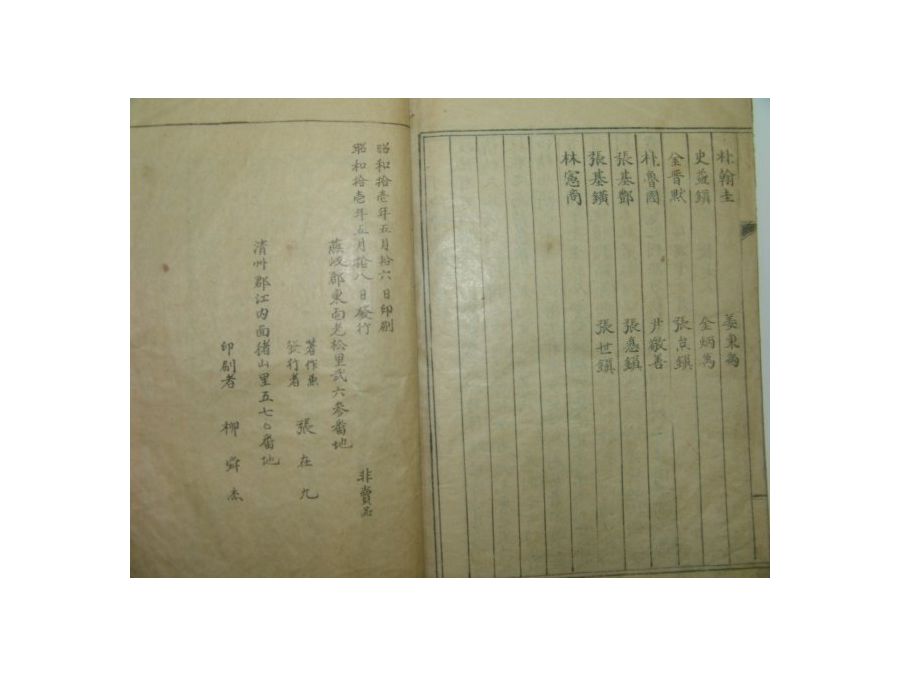 朴翰圭
史益鎭
金晋默
朴魯國
張基酆
張基鐄
林憲商
姜東
金炳萬
張 鎭
尹敬善
張悳鎭
張世鎭
昭和拾壱年五月拾六日印刷
昭和拾壱年五月拾八日發行
非賣品
燕岐郡東面老松里弍六参番地
著作兼
發行者
張在九
清州郡江內面猪山里五七〇番地
印刷者
柳舜